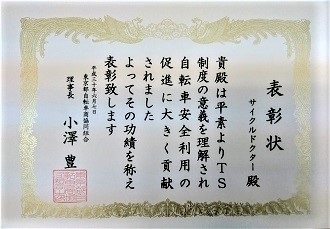 表彰状
サイクルドクター殿
貴殿は平素よりTS
制度の意義を理解され
自転車安全利用の
促進に大きく貢献
されました
よってその功績を称え
表彰致します
平成三十年六月七日
東京都自転車商協同組合
理事長 小澤豊